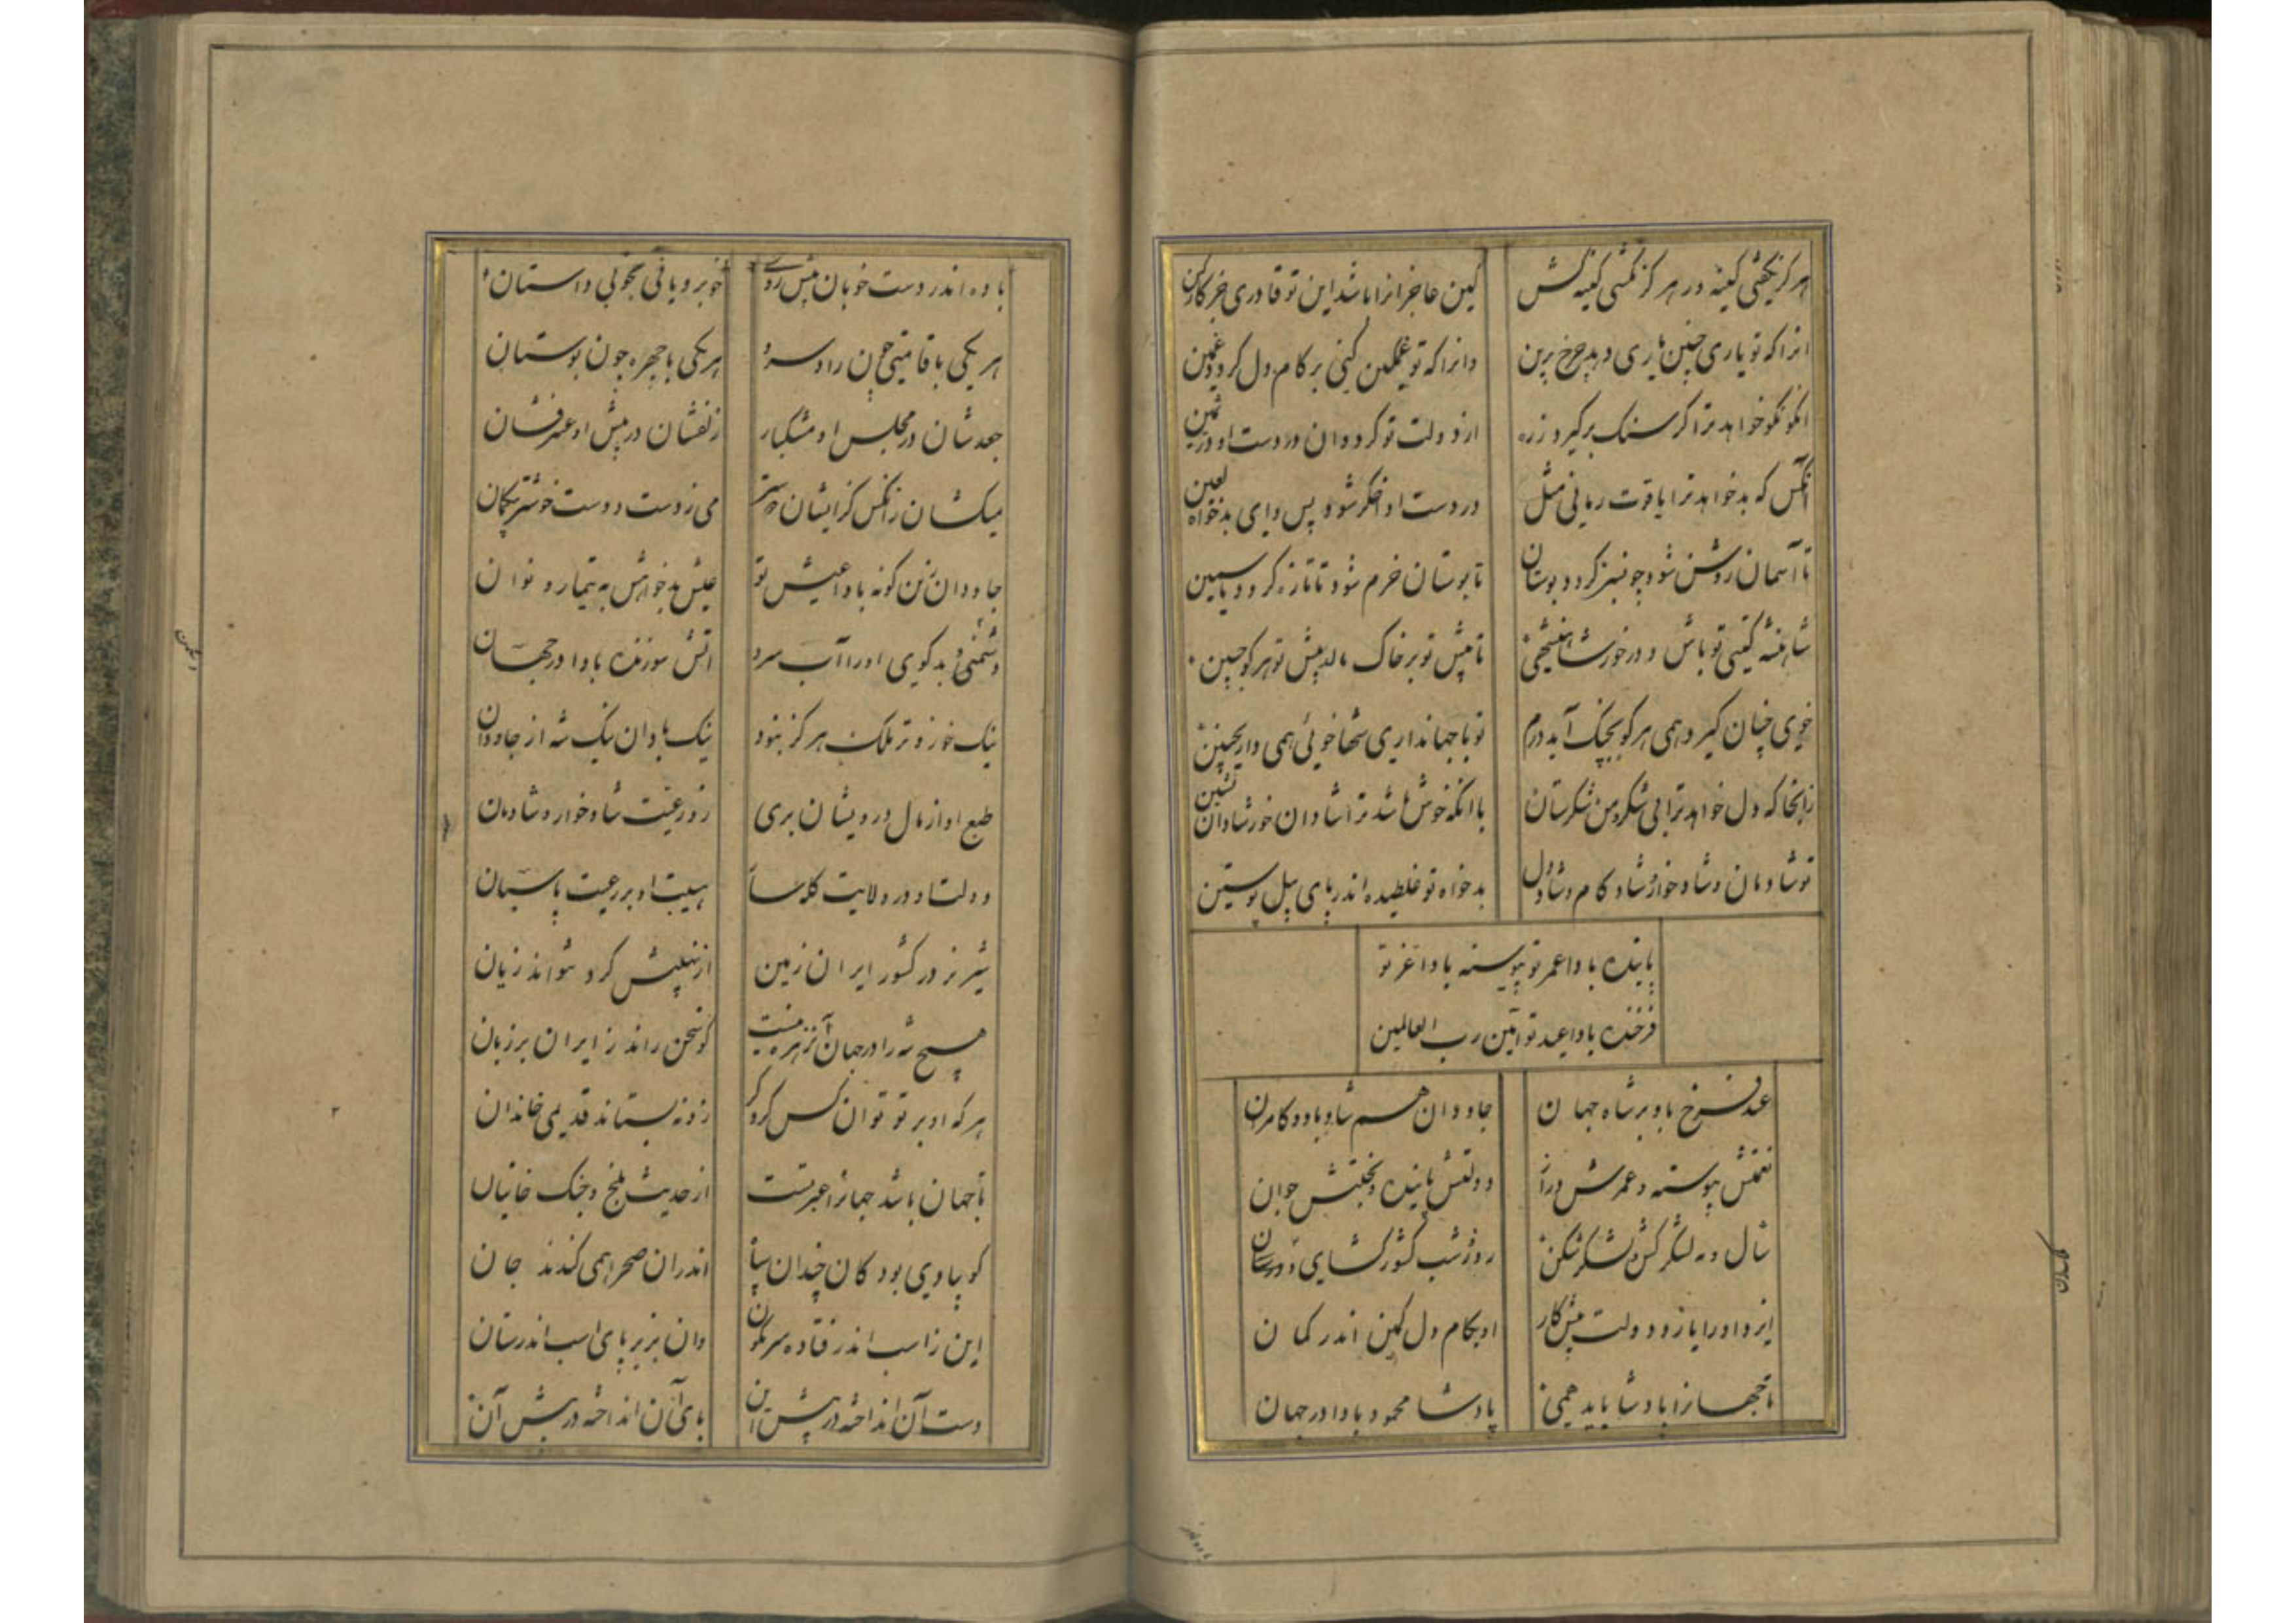 هرگز نکشی کینه ور هرگز نکشی کینه کش
کین عاجزانرا باشد این تو قادری جز کار کین
انرا که تو یاری چنین یاری دهد چرخ برین
وانرا که تو غمگین کنی بر کام دل گردد غمین
انکو نکو خواهد ترا گر سنگ برگیرد زره
از دولت تو گردد ان در دست او در ثمین
آنکس که بد خواهد ترا یاقوت رمانی مثل
در دست او اخگر شود پس وای بدخواه لعین
تا آسمان روشن شود چو سبز گردد بوستان
تا بوستان خرم شود تا تازه گردد یاسمین
شاهنشه گیتی تو باش و در خور شاهنشهی
تا پیش تو بر خاک مالد پیش تو هرکو جبین
خوی چنان گیرد همی هرکو بچنگ آید درم
تو با جهانداری شها خوئی همی داری چنین
زانجا که دل خواهد ترا لی شکر من شکرستان
با انکه خوش باشد ترا شادان خور شادان نشین
تو شادمان و شاد خوار و شاد کام و شاد دل
بدخواه تو غلطیده اندر پای پیل پوستین
پاینده بادا عمر تو پیوسته بادا عز تو
فرخنده بادا عید تو آمین رب العالمین
عید فرخ باد بر شاه جهان
جاودان هم شاد باد و کامران
نعمتش پیوسته و عمرش دراز
دولتش پاینده و بختش جوان
سال و مه لشکر کش و لشکر شکن
روز و شب کشور گشای و
ایزد او را یار و دولت پیش کار
او بکام دل مکین اندر مکان
تا جهانرا پادشا باید همی
پادشا محمود بادا در جهان
باده اندر دست خوبان پیش روی
خوبرویانی نکوبی داستان
هر یکی با قامتی چون راد سرو
هر یکی با چهره چون بوستان
جعدشان در مجلس او مشکبار
زلفشان در پیش او عنبر فشان
میکشان زانکس کز ایشان دوستر
می ز دست دوست خوشتر بیکمان
جاودان زین گونه بادا عیش تو
عیش بدخواهش به تیمار و نوان
دشمنی و بدگوی او را آب سرد
آتش سوزنده بادا در جهان
نیک خو زو تر ملک هرگز نبود
نیک بادان نیک شه از جاودان
طبع او از مال درویشان بری
زو رعیت شاد خوار و شادمان
دولت او در ولایت کارساز
هیبت او بر رعیت پاسبان
شیر نر در کشور ایران زمین
از نهیبش کرد نتواند زیان
هیچ شه را در جهان آن زهره نیست
کو سخن راند ز ایران بر زبان
هر که او بر تو توان کس کرد
زو نه بستاند قدیمی خاندان
تا جهان باشد جهانرا عبرتست
از حدیث بلخ و جنگ خانیان
گوییا دی بود کان چندان سپاه
اندران صحرا همی کندند جان
این ز اسب اندر فتاده سرنگون
وان بزیر پای اسب اندر ستان
دست آن انداخته در پیش این
پای آن انداخته در پیش آن